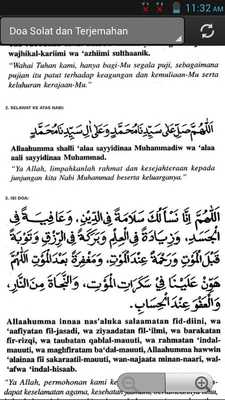 11:32 AM
Doa Solat dan Terjemahan
wajhikal-kariimi wa 'azhiimi sulthaanik.
"Wahai Tuhan kami, hanya bagi-Mu segala puji, sebagaimana
pujian itu patut terhadap keagungan dan kemuliaan-Mu serta
keluhuran kerajaan-Mu."
2. SELAWAT KE ATAS NABI:
اَللّٰهُمَّ صَلِّ عَلٰى سَيِّدِنَا مُحَمَّدٍ وَعَلٰى اٰلِ سَيِّدِنَا مُحَمَّدٍ
Allaahumma shalli 'alaa sayyidinaa Muhammadiw wa 'alaa
aali sayyidinaa Muhammad.
"Ya Allah, limpahkanlah rahmat dan kesejahteraan kepada
junjungan kita Nabi Muhammad beserta keluarganya."
3. ISI DOA:
اَللّٰهُمَّ اِنَّا نَسْأَلُكَ سَلَامَةً فِى الدِّيْنِ، وَعَافِيَةً فِى
الْجَسَدِ، وَزِيَادَةً فِى الْعِلْمِ وَبَرَكَةً فِى الرِّزْقِ وَتَوْبَةً
قَبْلَ الْمَوْتِ وَرَحْمَةً عِنْدَ الْمَوْتِ، وَمَغْفِرَةً بَعْدَ الْمَوْتِ اَللّٰهُمَّ
هَوِّنْ عَلَيْنَا فِيْ سَكَرَاتِ الْمَوْتِ، وَالنَّجَاةَ مِنَ النَّارِ،
وَالْعَفْوَ عِنْدَ الْحِسَابِ.
Allaahumma innaa nas'aluka salaamatan fid-diini, wa
'aafiyatan fil-jasadi, wa ziyaadatan fil-'ilmi, wa barakatan
fir-rizqi, wa taubatan qablal-mauuti, wa rahmatan 'indal-
mauuti, wa maghfiratan ba'dal-mauuti, Allaahumma hawwin
'alainaa fii sakaraatil-mauuti, wan-najaata minan-naari, wal-
'afwa 'indal-hisaab.
"Ya Allah, permohonan kami
dapat keselamatan agama,